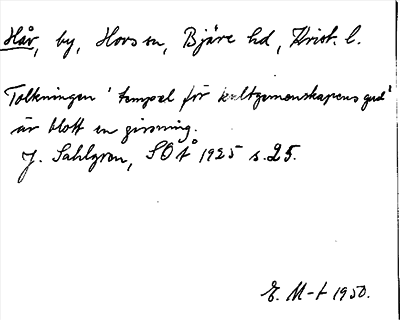 Hår, by, Hovs sn, Bjäre hd, Krist. l.
Tolkningen 'tempel för kultgemenskapens gud'
är blott en gissning.
J. Sahlgren, SOÅ 1925 s. 25.
E. M-t 1950.